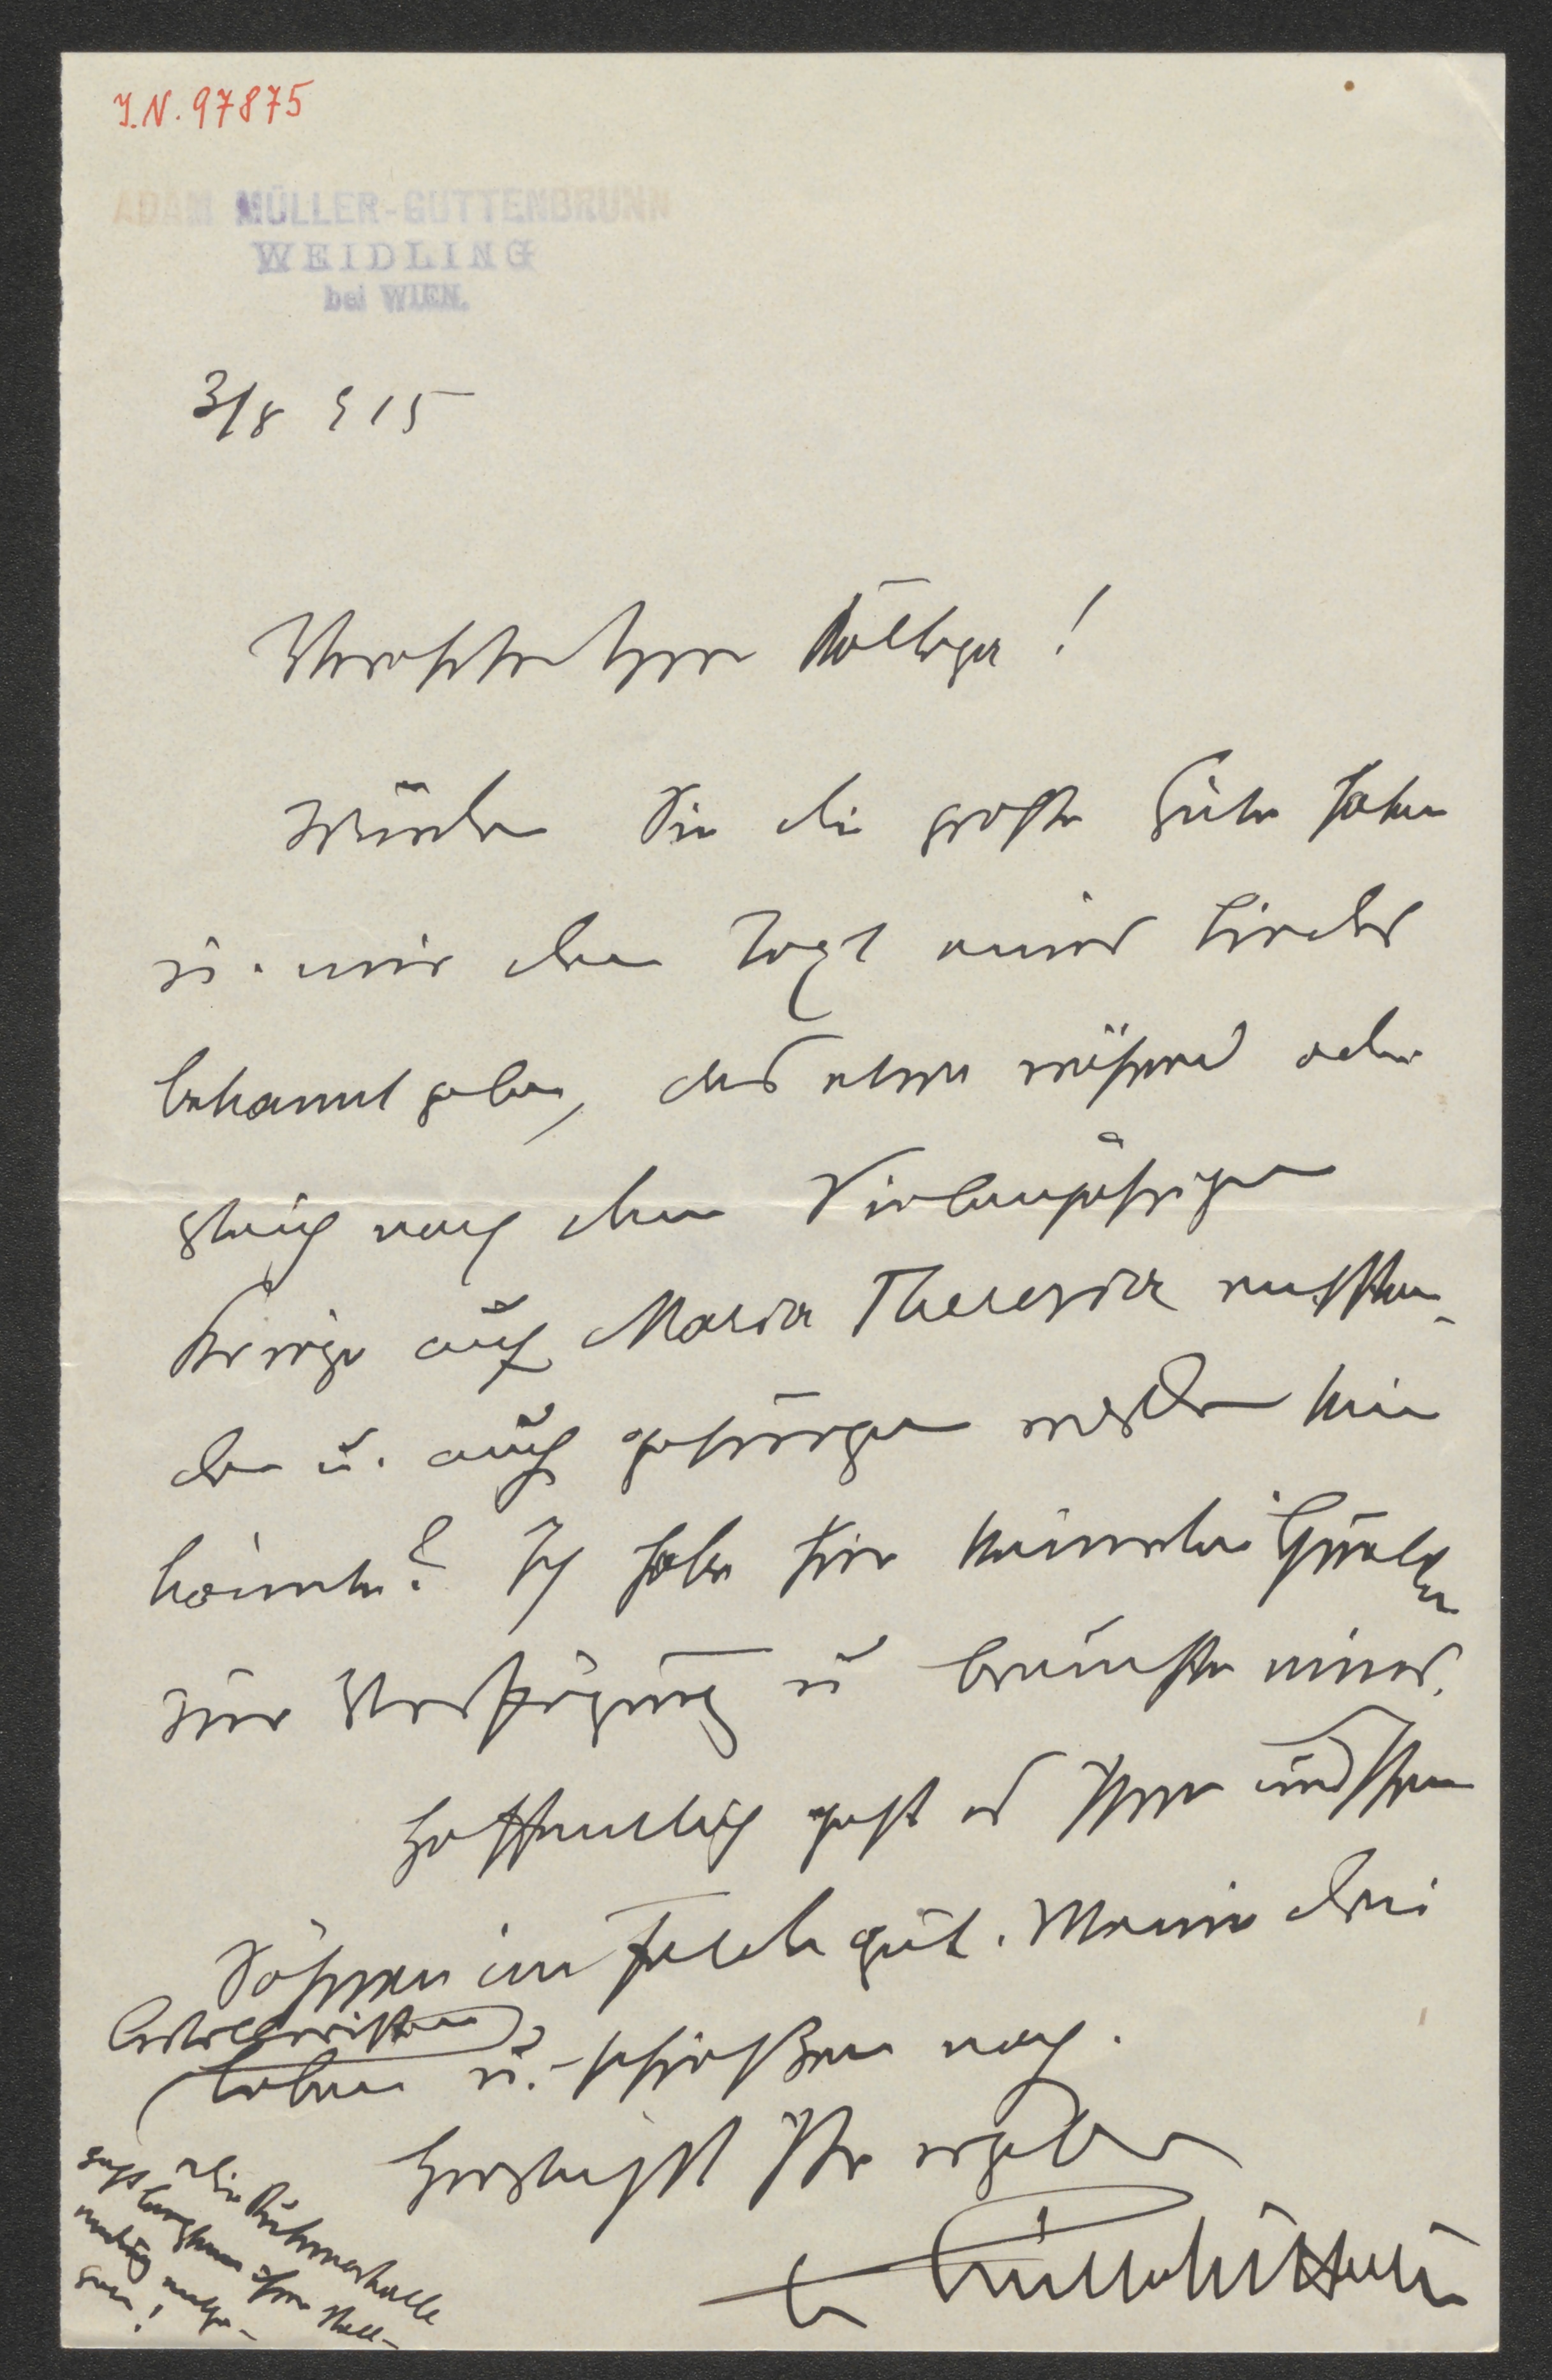 I.N. 97875
ADAM MÜLLER-GUTTENBRUNN
WEIDLING
bei WIEN.
3/8 915
Verehrter Herr Kollega!
Würden Sie die große Güte haben
u. mir den Text eines Liedes
bekannt geben, das etwa während oder
gleich nach dem Siebenjährigen
Kriege auf Maria Theresia entstan-
den u. auch gesungen worden sein
könnte? Ich habe hier keinerlei Quellen
zur Verfügung u brauchte eines.
Hoffentlich geht es Ihnen und Ihren
Söhnen im Felde gut. Meine drei
Artilleristen
leben u. schießen noch.
Herzlichst Ihr ergeben
Die Ruhmeshalle
geht langsam ihrer Voll-
endung entge-
gen!